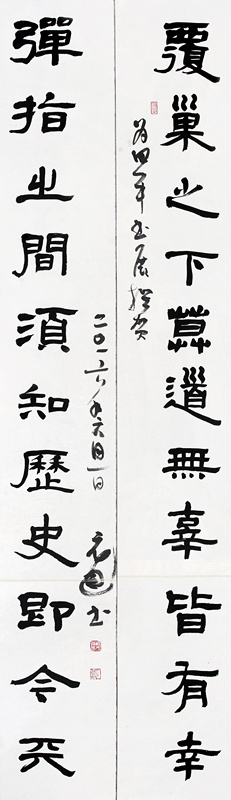 覆巢之下莫道無辜皆有幸
彈指之間須知歷史即今天
二〇一六年六月一日